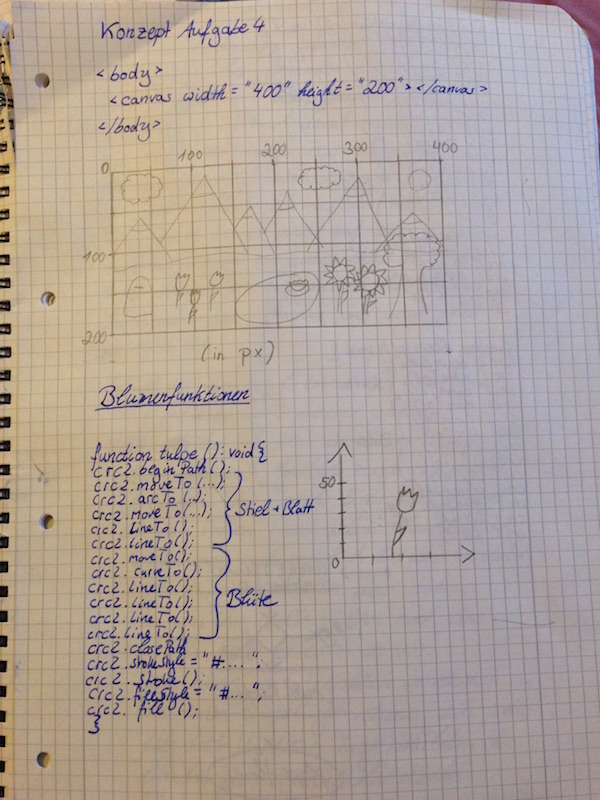 Konzept Aufgabe 4
<body>
<canvas width = "400" height = "200"></canvas>
</body>
0 100 200 300 400
100
200
(in px)
Blumenfunktionen
function tulpe (): void {
crc2.beginPath();
crc2.moveTo(...);
crc2.arcTo(..);
crc2.moveTo(...);
crc2.LineTo();
crc2.lineTo();
Stiel + Blatt
crc2.moveTo();
crc2.curveTo();
crc2.LineTo();
crc2.LineTo();
crc2.LineTo();
crc2.LineTo();
Blüte
crc2.closePath
crc2.strokeStyle = "#....";
crc2.stroke();
crc2.fillStyle = "#...";
crc2.fill();
}
50
0